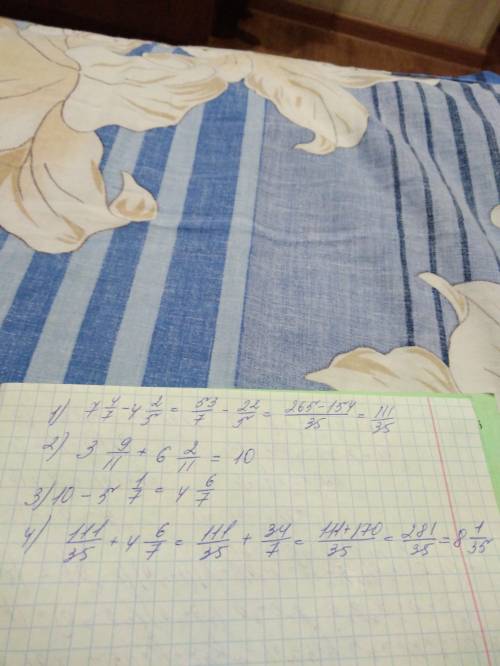 1) 7 4/7 - 4 2/5 = 53/7 - 22/5 = 265-154/35 = 111/35
2) 3 9/11 + 6 2/11 = 10
3) 10 - 5 1/7 = 4 6/7
4) 111/35 + 4 6/7 = 111/35 + 34/7 = 111+170/35 = 281/35 = 8 1/35